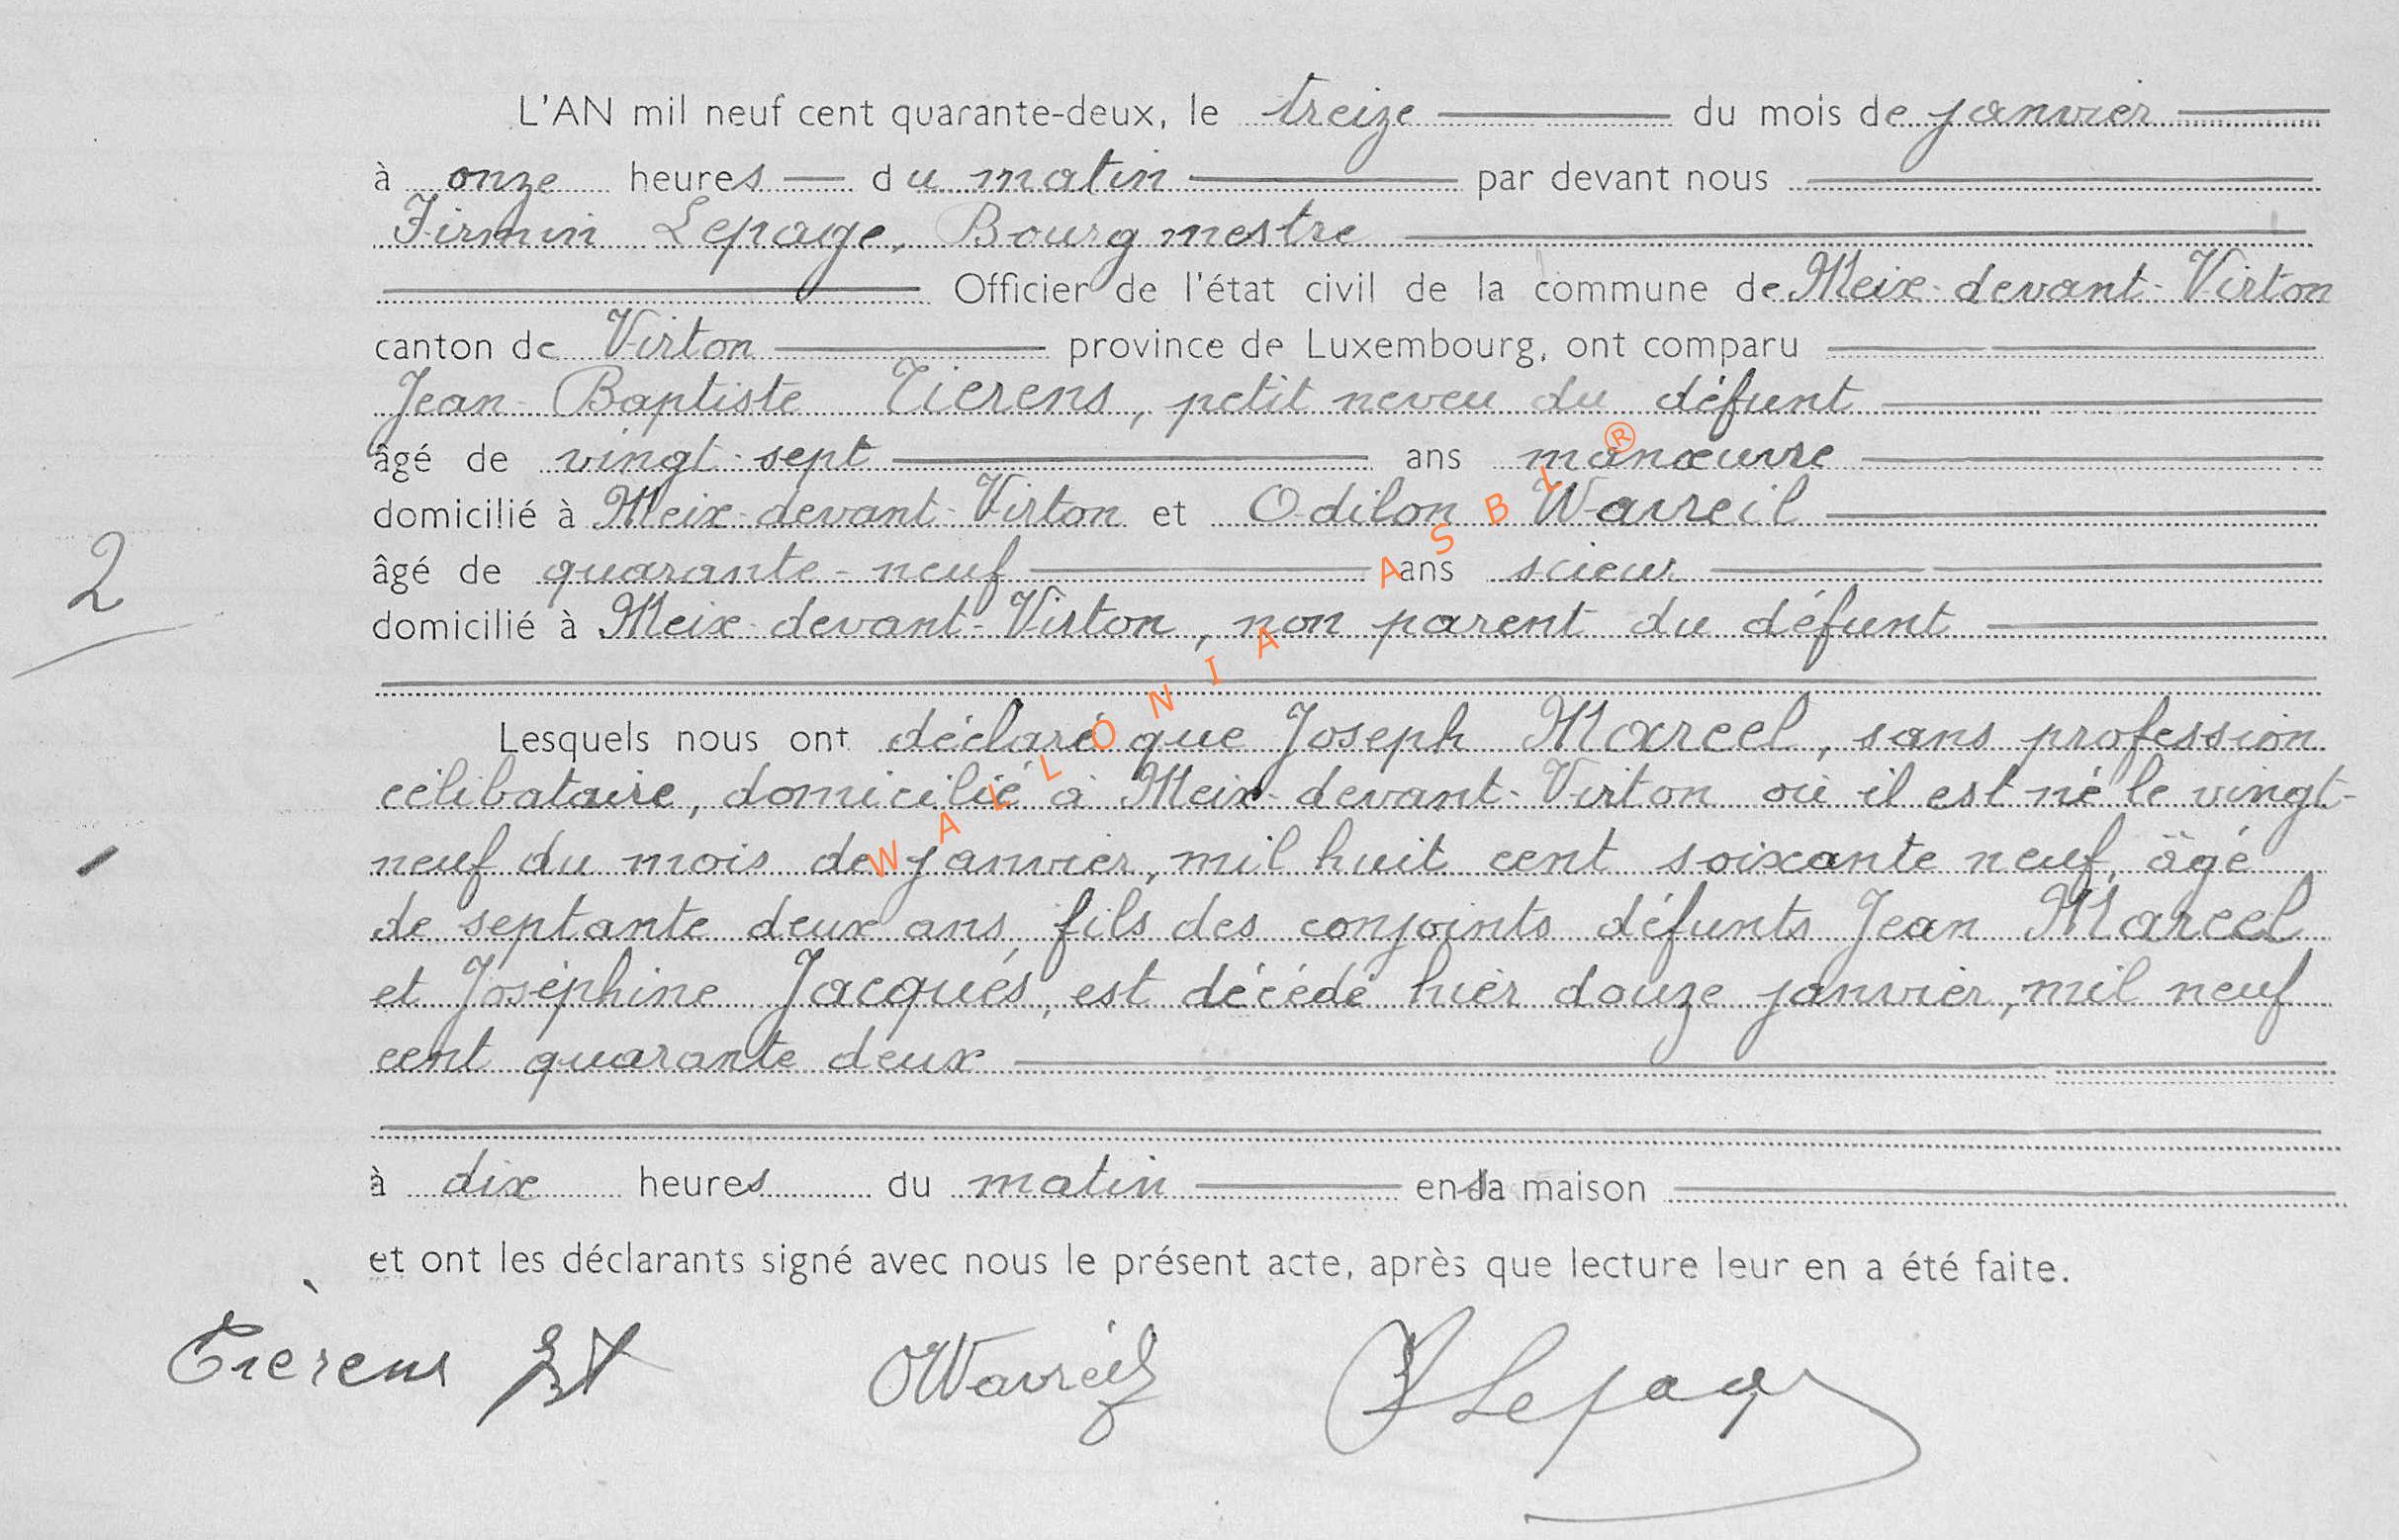 L'AN mil neuf cent quarante-deux, le treize du mois de janvier
à onze heures du matin par devant nous
Firmin Lepage, Bourgmestre
Officier de l'état civil de la commune de Meix-devant-Virton
canton de Virton province de Luxembourg, ont comparu
Jean-Baptiste Tierens, petit neveu du défunt
âgé de vingt-sept ans manœuvre
domicilié à Meix-devant-Virton et Odilon Wavreil
âgé de quarante-neuf ans scieur
domicilié à Meix-devant-Virton, non parent du défunt
2
Lesquels nous ont déclaré que Joseph Marcel, sans profession
célibataire, domicilié à Meix-devant-Virton où il est né le vingt-
neuf du mois de janvier, mil huit cent soixante neuf, âgé
de septante deux ans, fils des conjoints défunts Jean Marcel
et Joséphine Jacqués, est décédé hier douze janvier, mil neuf
cent quarante deux
à dix heures du matin en sa maison
et ont les déclarants signé avec nous le présent acte, après que lecture leur en a été faite.
Tièrens JBt OWavreil FLepage
WALLONIA ASBL ®